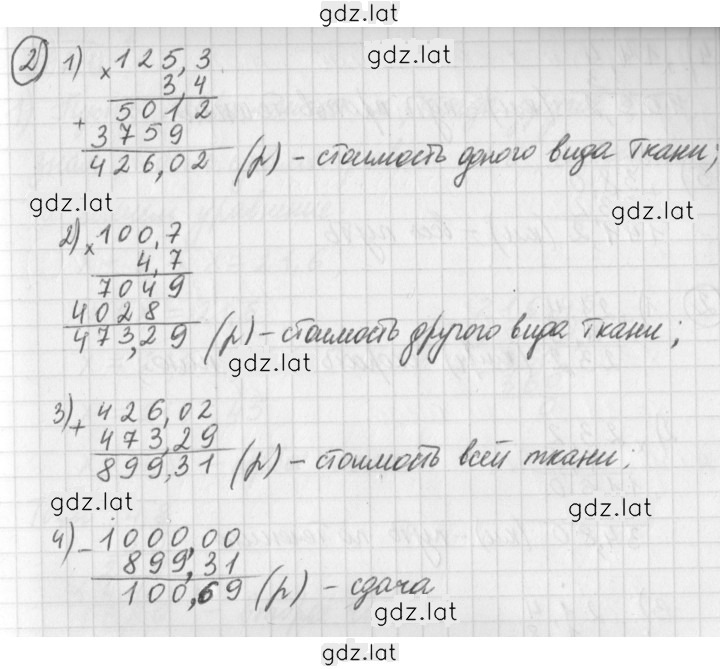 gdz.lat
gdz.lat
2) 1) × 125,3
3,4
5012
+ 3759
426,02 (р) - стоимость одного вида ткани;
gdz.lat
gdz.lat
2) × 100,7
4,7
7049
4028
473,29 (р) - стоимость другого вида ткани;
gdz.lat
3) + 426,02
473,29
899,31 (р) - стоимость всей ткани;
gdz.lat
gdz.lat
4) - 1000,00
899,31
100,69 (р) - сдача
gdz.lat
gdz.lat